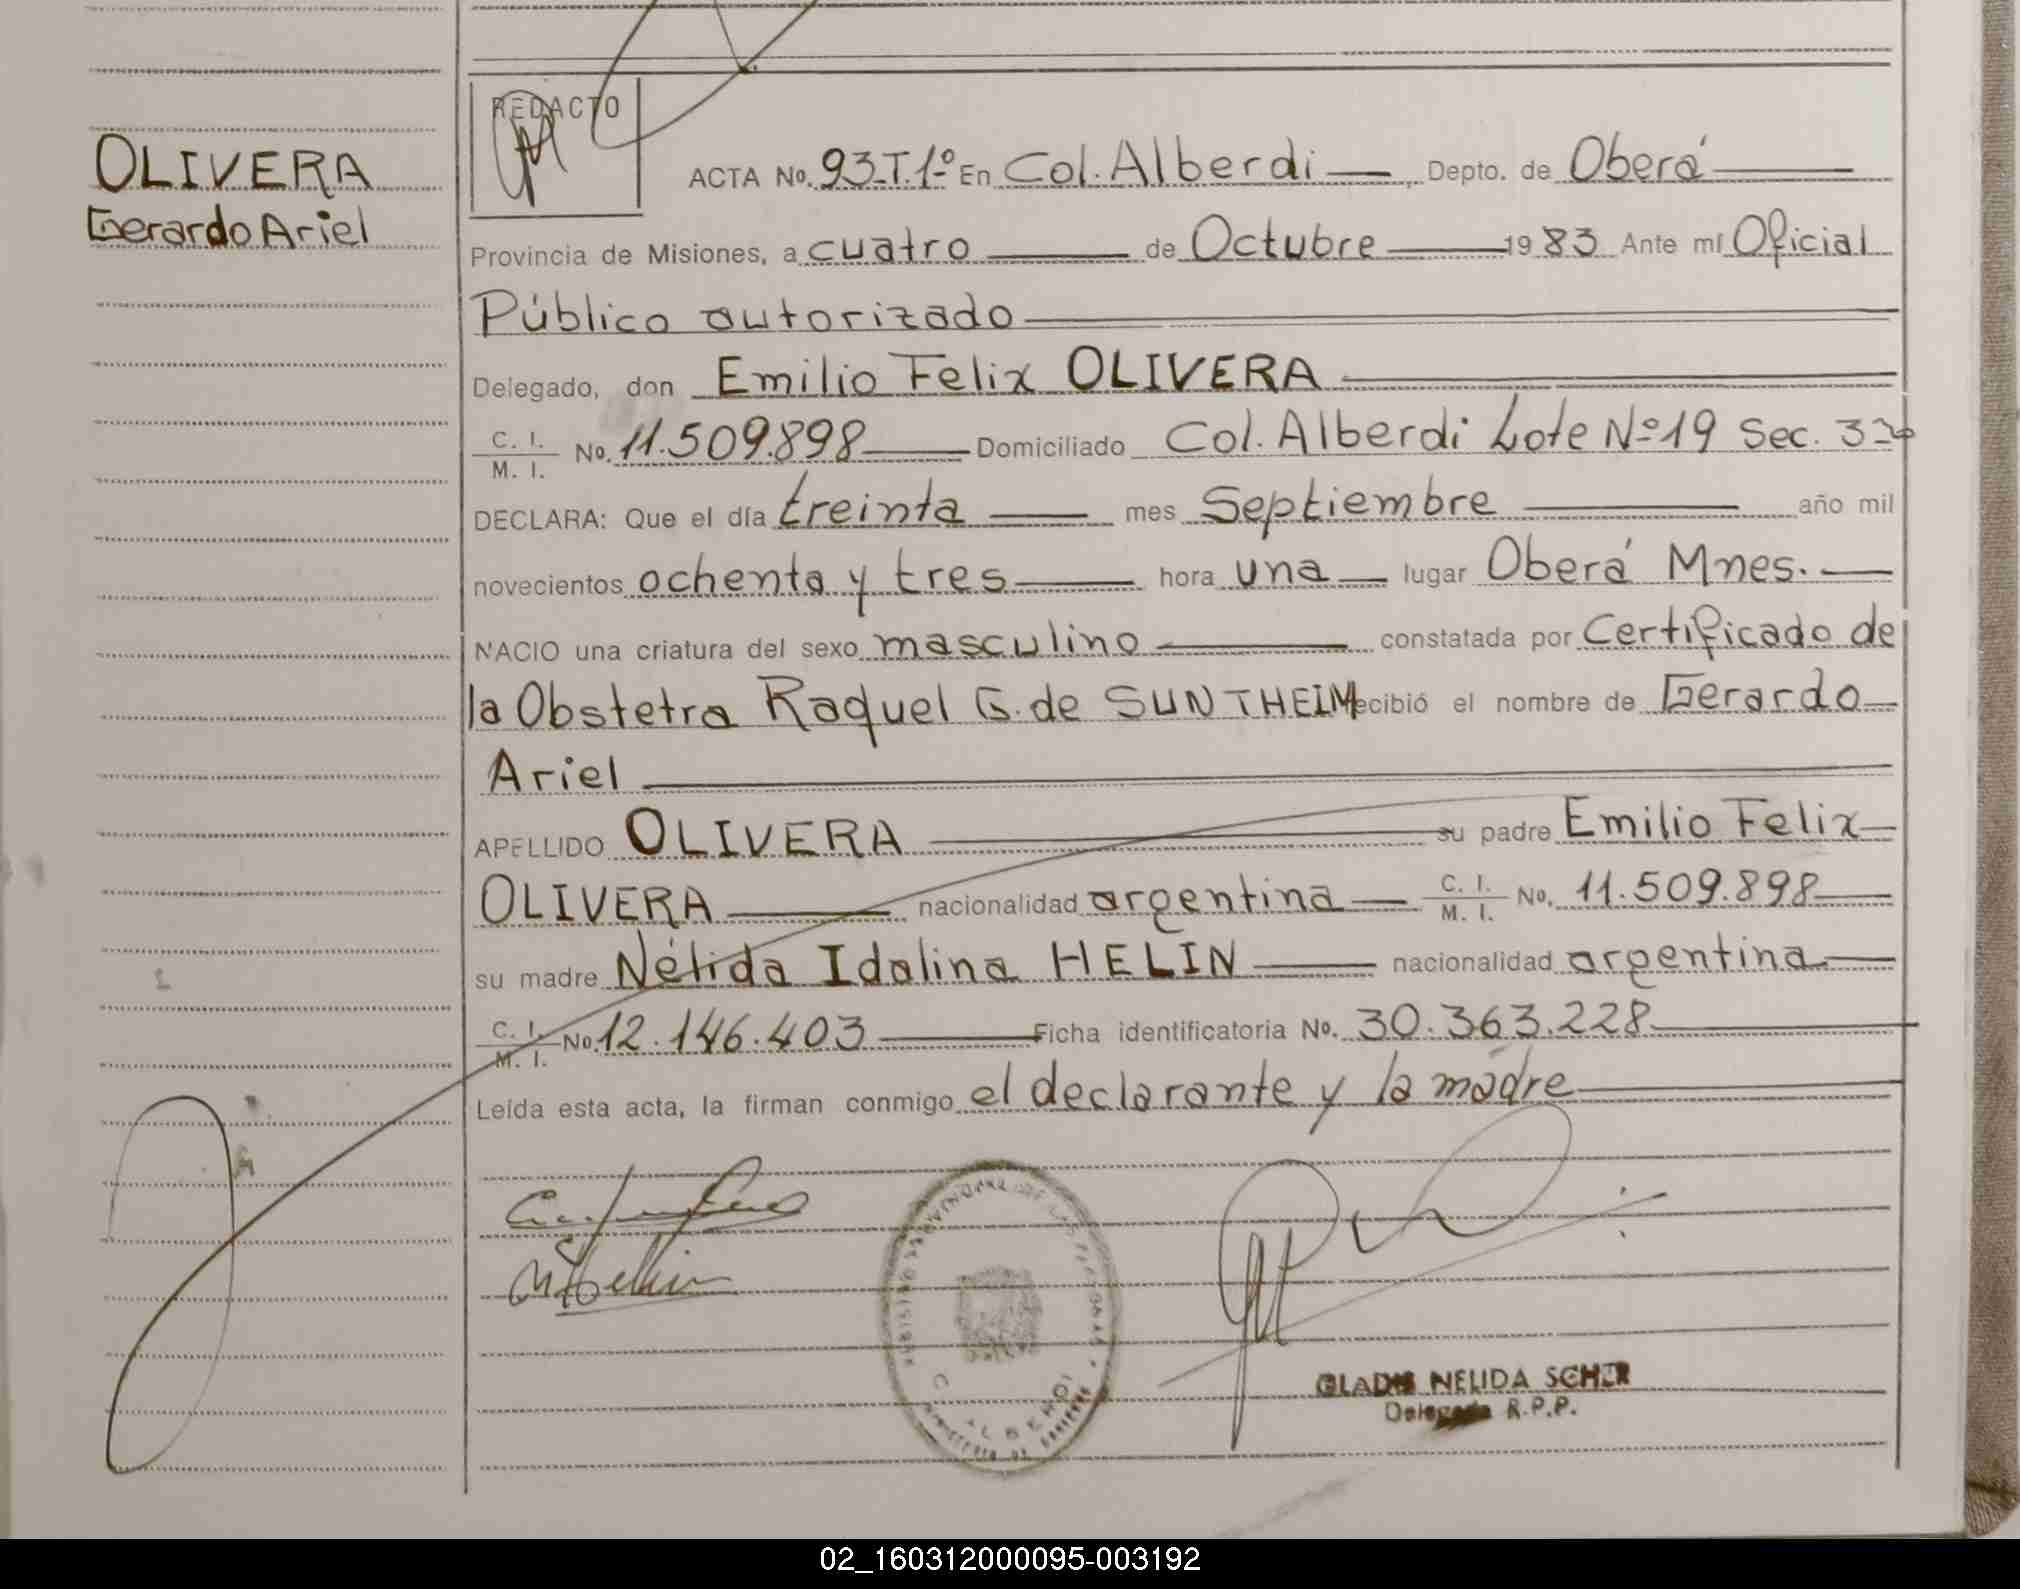 REDACTO
OLIVERA
Gerardo Ariel
ACTA No. 93-T.1º En Col. Alberdi Depto. de Oberá
Provincia de Misiones, a cuatro de Octubre 1983 Ante mí Oficial
Público autorizado
Delegado, don Emilio Felix OLIVERA
C. I. / M. I. No. 11.509.898 Domiciliado Col. Alberdi Lote Nº 19 Sec. 3ra
DECLARA: Que el día treinta mes Septiembre año mil
novecientos ochenta y tres hora una lugar Oberá Mnes.
NACIO una criatura del sexo masculino constatada por Certificado de
la Obstetra Raquel G. de SUNTHEIM ecibió el nombre de Gerardo
Ariel
APELLIDO OLIVERA su padre Emilio Felix
OLIVERA nacionalidad argentina C. I. / M. I. No. 11.509.898
su madre Nélida Idalina HELIN nacionalidad argentina
C. I. / M. I. No. 12.146.403 Ficha identificatoria No. 30.363.228
Leída esta acta, la firman conmigo el declarante y la madre
GLADIS NELIDA SCHER
Delegada R.P.P.
02_160312000095-003192